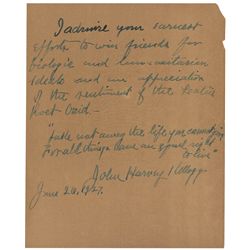 I admire your earnest
efforts to win friends for
biologic and humanitarian
ideals and an appreciation
of the sentiment of the
Poet Ovid —
"Take not away the life you can
For all things have an equal right
to live"
John Harvey Kellogg
June 20, 1927.